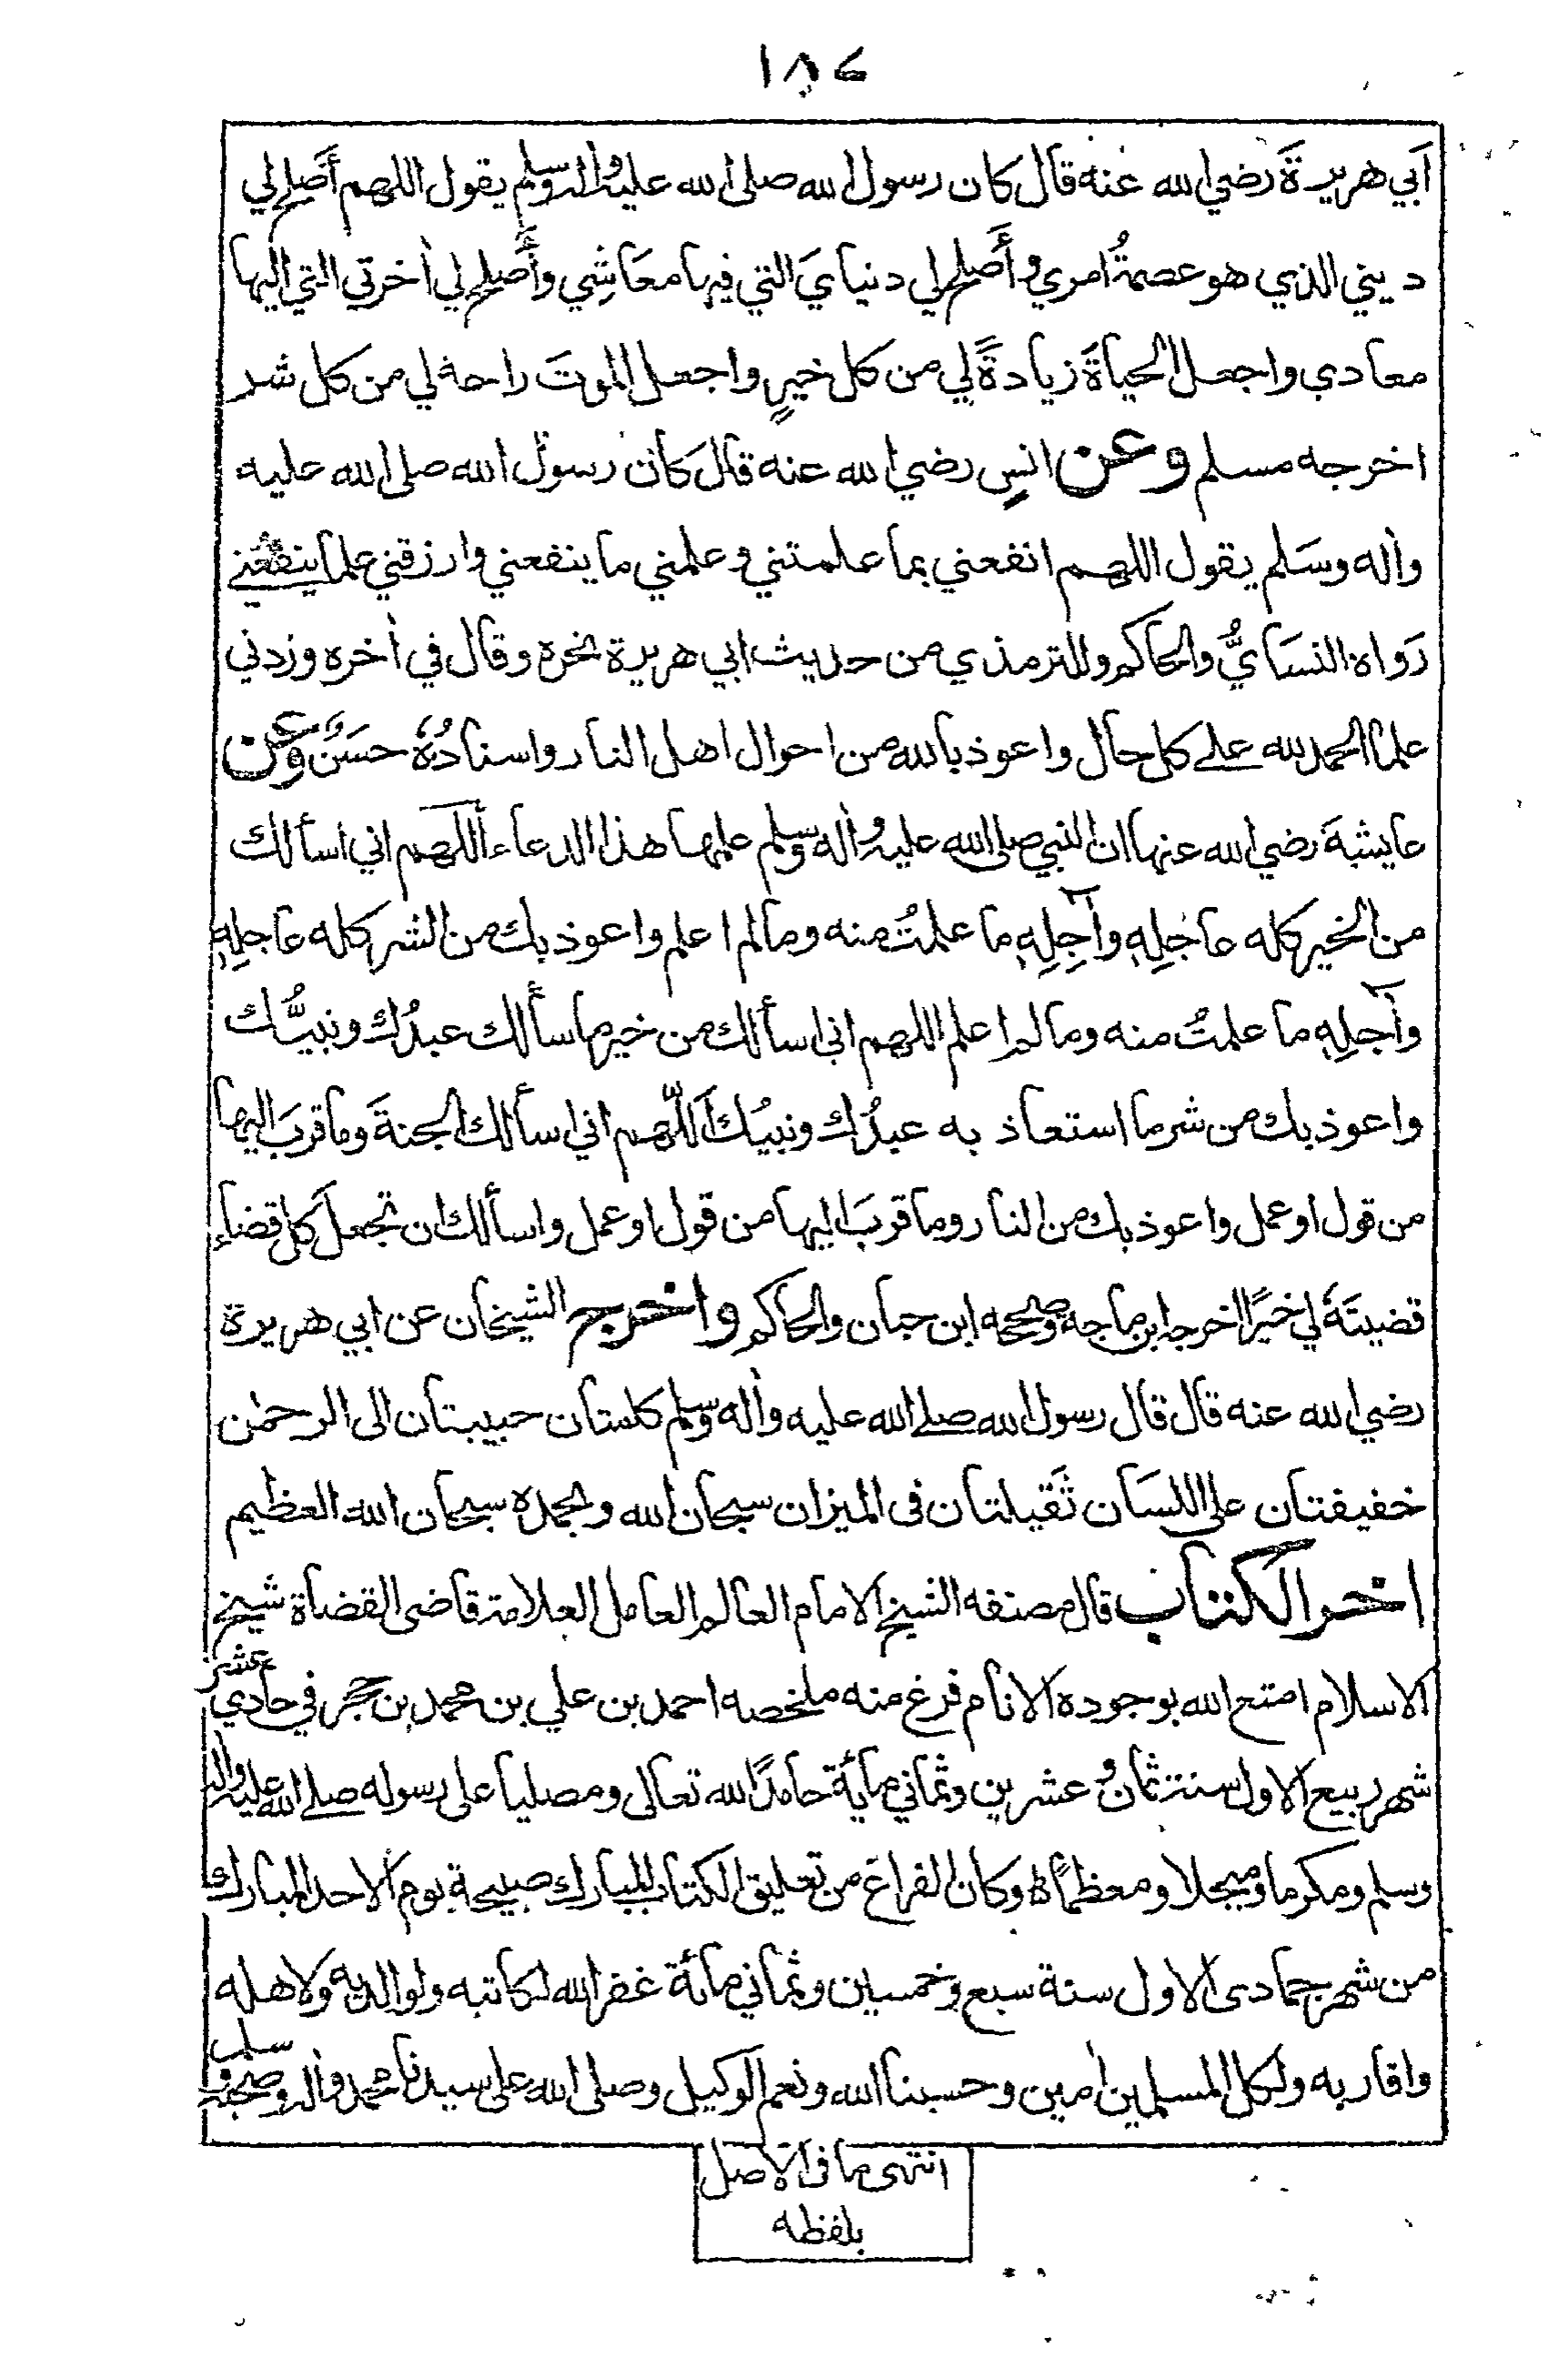 ١٨٤
أَبي هريرةَ رضي الله عنه قال كان رسول الله صلى الله عليه واله وسلم يقول اللهم أَصلح لي
ديني الذي هو عصمةُ امري وأَصلح لي دنيايَ التي فيها معَاشِي وأَصلح لي اٰخرتي التي اليها
معادي واجعل الحياةَ زيادةً لي من كل خيرٍ واجعل الموتَ راحة لي من كل شر
اخرجه مسلم وعن انسٍ رضي الله عنه قال كان رسول الله صلى الله عليه
واٰله وسَلم يقول اللهم انفعني بما علمتني وعلمني ما ينفعني وارزقني علما ينفعني
رَواه النسَايُّ والحاكمُ وللترمذي من حديث ابي هريرة نحوه وقال في اٰخره وزدني
علما الحمد لله على كل حال واعوذ بالله من احوال اهل النار واسنادُهٗ حسَنٌ وَعن
عايشةَ رضي الله عنها ان النبي صلى الله عليه واٰله وسلم علمها هذا الدعاء أللهم اني اسألك
من الخير كله عاجلِهٖ وآجِلِهٖ ما علمتُ منه وما لم اعلم واعوذ بك من الشر كله عاجلِهٖ
وآجلِهٖ ما علمتُ منه وما لم اعلم اللهم اني اسألك من خير ما سألك عبدُك ونبيُّك
واعوذ بك من شر ما استعاذ به عبدُك ونبيُك اَللّهم اني اسألك الجنةَ وما قربَ اليها
من قول او عمل واعوذ بك من النار وما قربَ اليها من قول او عمل واسألك ان تجعل كل قضاءٍ
قضيتَهٗ لي خيرًا اخرجه ابن ماجه وصححه ابن حبان والحاكم واخرج الشيخان عن ابي هريرة
رضي الله عنه قال قال رسول الله صلى الله عليه واٰله وسلم كلمتان حبيبتان الى الرحمٰن
خفيفتان على اللسَان ثَقيلتان في الميزان سبحان الله وبحمده سبحان الله العظيم
اخر الكتاب قال مصنفه الشيخ الامام العالم العامل العلامة قاضى القضاة شيخ
الاسلام امتع الله بوجوده الانام فرغ منه ملخصه احمد بن علي بن محمد بن حجر في حادي عشر
شهر ربيع الاول سنة ثمان وعشرين وثماني مأية حامدًا لله تعالى ومصليا على رسوله صلى الله عليه واٰله
وسلم ومكرما ومبجلا ومعظمًا وكان الفراغ من تعليق الكتاب المبارك صبيحة يوم الاحد المبارك
من شهر جمادى الاول سنة سبع وخمسين وثماني مأئة غفر الله لكاتبه ولوالديه ولاهله
واقاربه ولكل المسلمين اٰمين وحسبنا الله ونعم الوكيل وصلى الله على سيدنا محمد واٰله وصحبه وسلم
انتهى ما في الاصل
بلفظه